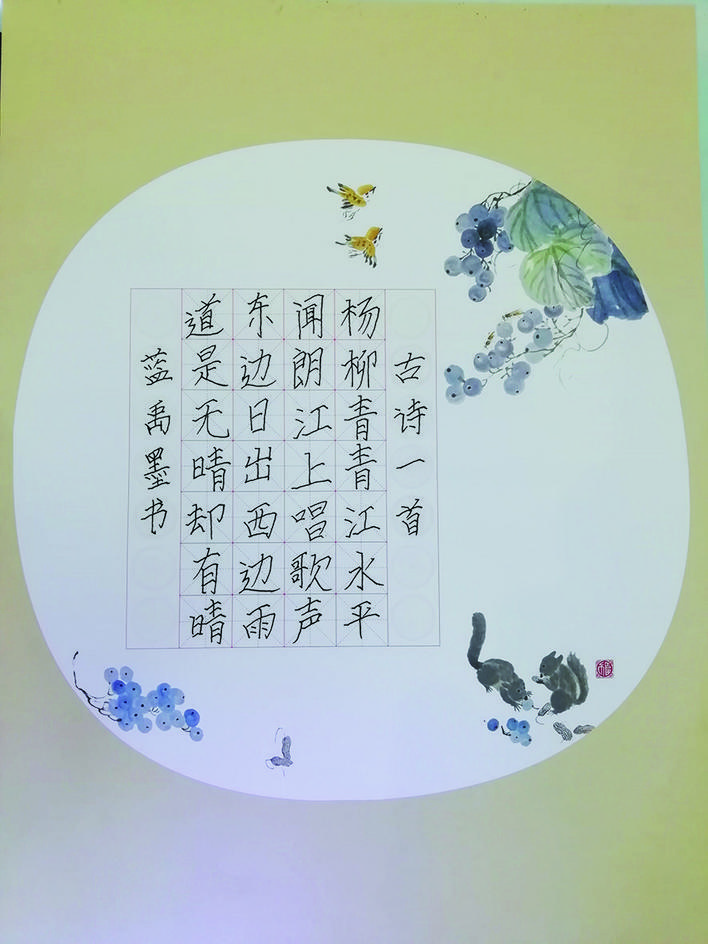 古诗一首
杨柳青青江水平
闻朗江上唱歌声
东边日出西边雨
道是无晴却有晴
蓝禹墨书